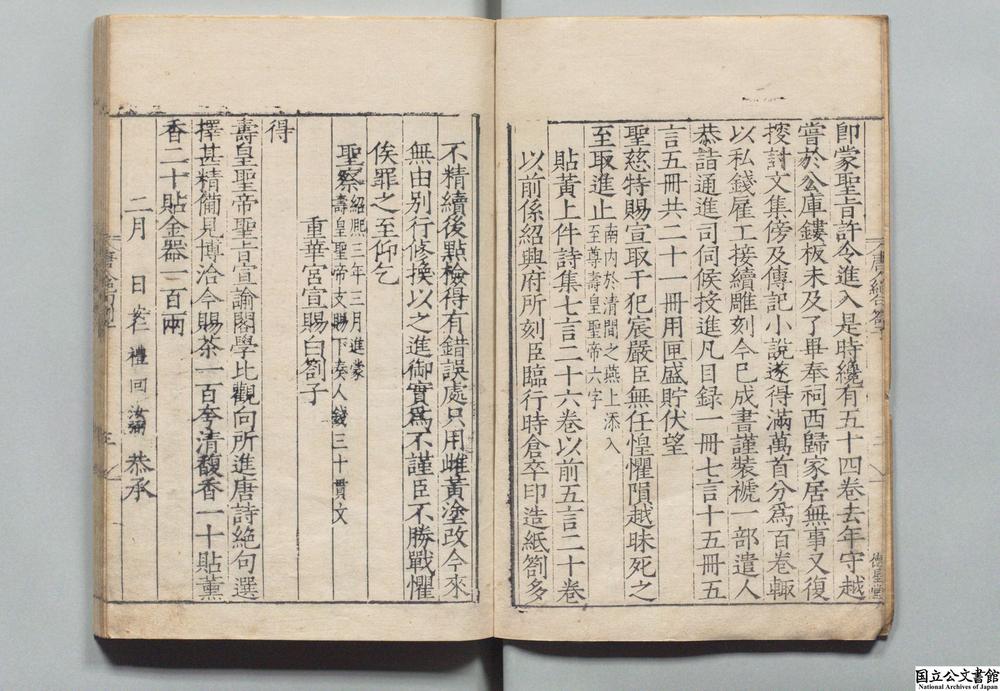 即蒙聖旨許令進入是時纔有五十四卷去年守越
嘗於公庫鏤板未及了畢奉祠西歸家居無事又復
搜討文集傍及傳記小說遂得滿萬首分為百卷輙
以私錢雇工接續雕刻今已成書謹裝褫一部遣人
恭詣通進司伺候投進凡目録一冊七言十五冊五
言五冊共二十一冊用匣盛貯伏望
聖慈特賜宣取干犯宸嚴臣無任惶懼隕越昧死之
至取進止
南內於清閒之燕上添入
至尊壽皇聖帝六字
貼黃上件詩集七言二十六卷以前五言二十卷
以前係紹興府所刻臣臨行時倉卒印造紙劄多
不精續後點檢得有錯誤處只用雌黃塗改今來
無由別行修換以之進御實爲不謹臣不勝戰懼
俟罪之至仰乞
聖察
紹熙三年三月進蒙
壽皇聖帝支賜下奏人錢三十貫文
重華宮宣賜白劄子
得
壽皇聖帝聖旨宣諭閣學比觀向所進唐詩絕句選
擇甚精備見博洽今賜茶一百夸清馥香一十貼薰
香二十貼金器一百兩
二月 日 禮 回 恭承
国立公文書館
National Archives of Japan